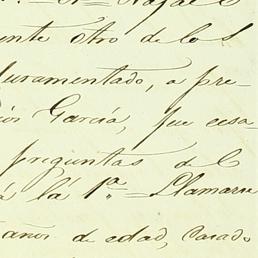 Rafael
ente otro de los
juramentado, a pre-
García, fue exa-
preguntas del
á la 1ª = Llamarse
años de edad, casado